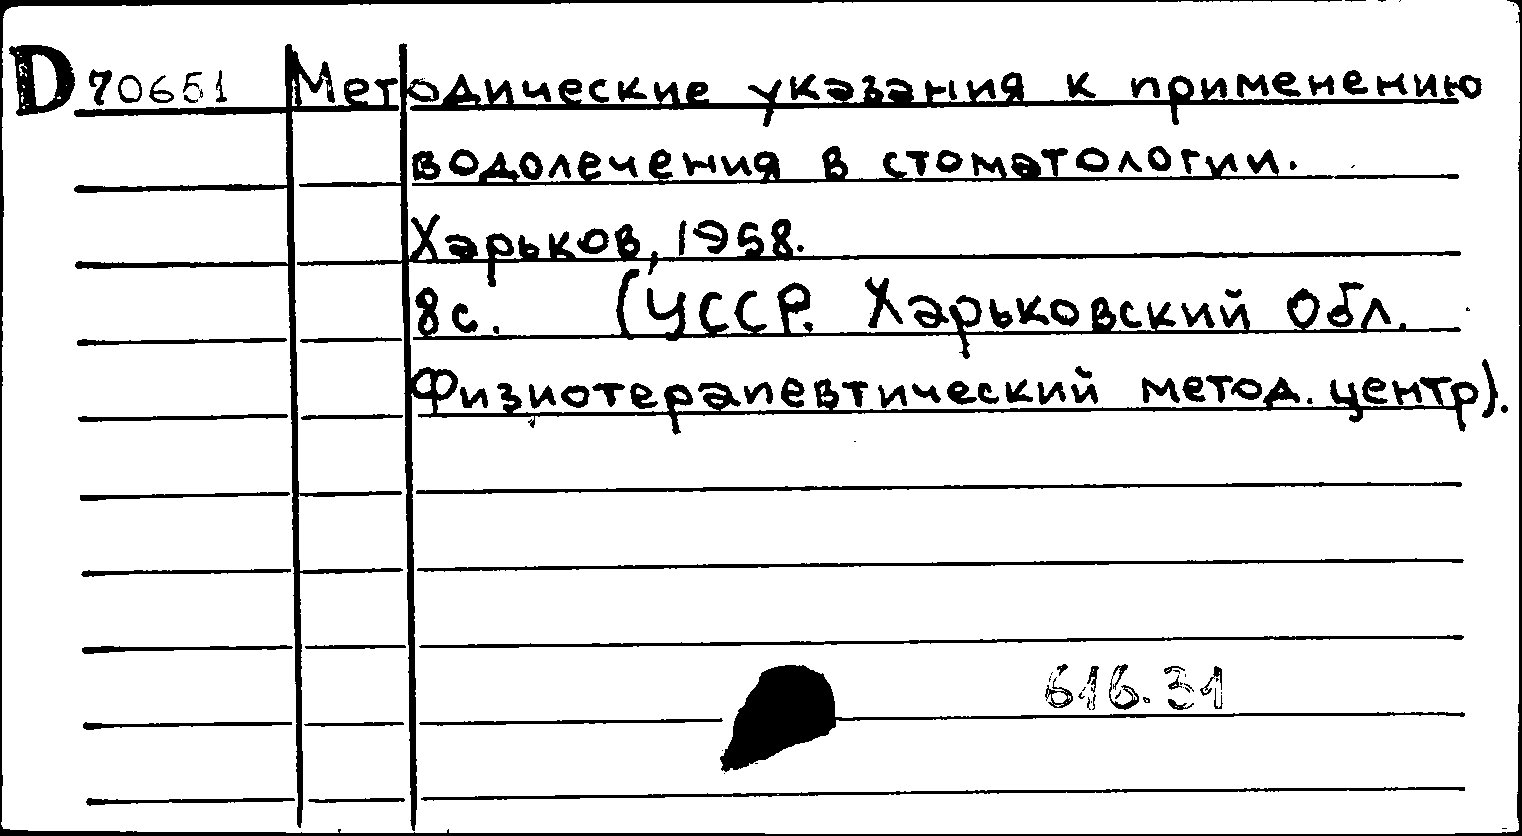 D 70651 Методические указания к применению
водолечения в стоматологии.
Харьков, 1958.
8с. (УССР. Харьковский Обл.
Физиотерапевтический метод. центр).
616.31